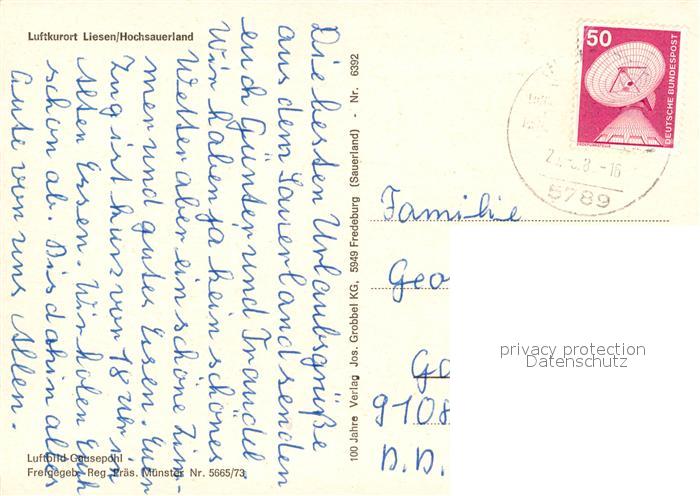 Luftkurort Liesen/Hochsauerland
Die besten Urlaubsgrüße
aus dem Sauerland senden
euch Günter und Traudel
Wir haben ja kein schönes
Wetter aber ein schöne Zim-
mer und gutes Essen. Euer
Zug ist kurz vor 18 Uhr in
Alten Essen. Wir holen Euch
schon ab. Bis dahin alles
Gute von uns Allen.
Luftbild-Geusepohl
Freigegeb. Reg. Präs. Münster Nr. 5665/73
100 Jahre Verlag Jos. Grobbel KG, 5949 Fredeburg (Sauerland) - Nr. 6392
50
DEUTSCHE BUNDESPOST
5789
Familie
Geo
Ga
9108
D.D.
privacy protection
Datenschutz